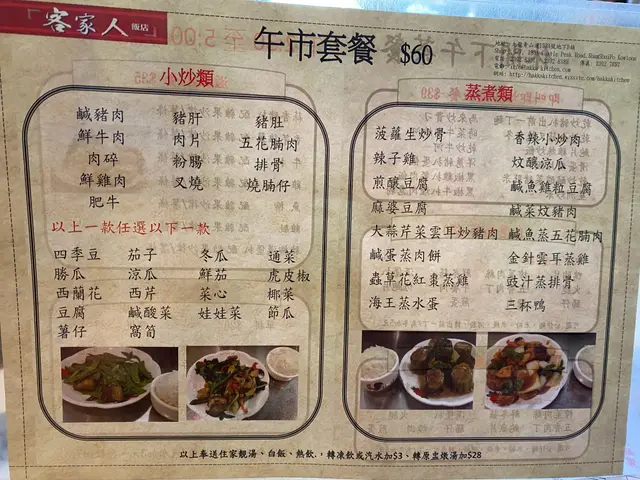 客家人 飯店
午市套餐 $60
小炒類
鹹豬肉 豬肝 豬肚
鮮牛肉 肉片 五花腩肉
肉碎 粉腸 排骨
鮮雞肉 叉燒 燒腩仔
肥牛
以上一款任選以下一款
四季豆 茄子 冬瓜 通菜
勝瓜 涼瓜 鮮茄 虎皮椒
西蘭花 西芹 菜心 椰菜
豆腐 鹹酸菜 娃娃菜 節瓜
薯仔 窩筍
蒸煮類
菠蘿生炒骨 香辣小炒肉
辣子雞 炆釀涼瓜
煎釀豆腐 鹹魚雞粒豆腐
麻婆豆腐 鹹菜炆豬肉
大蒜芹菜雲耳炒豬肉 鹹魚蒸五花腩肉
鹹蛋蒸肉餅 金針雲耳蒸雞
蟲草花紅棗蒸雞 豉汁蒸排骨
海王蒸水蛋 三杯鴨
以上奉送住家靚湯、白飯、熱飲.，轉凍飲或汽水加$3、轉原盅燉湯加$28